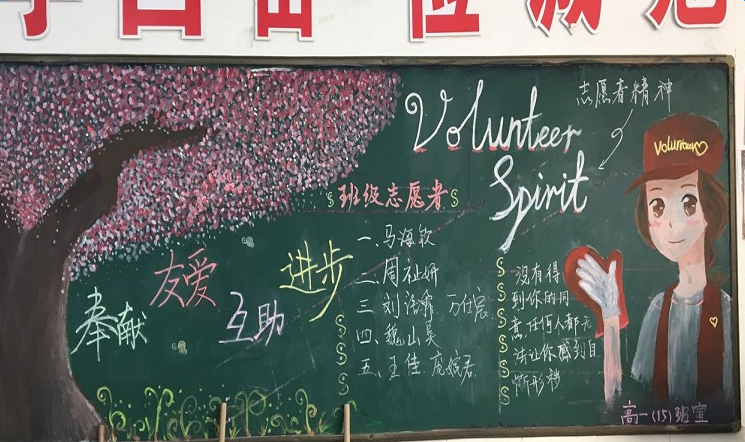 Volunteer
Spirit
志愿者精神
Volunteer
班级志愿者
一、马海钦
二、周祉妍
三 刘洛
四、魏山昊
五、王佳 庞婉君
奉献
友爱
互助
进步
没有得
到你的同
意,任何人都无
法让你感到自
惭形秽
高一(15)班宣